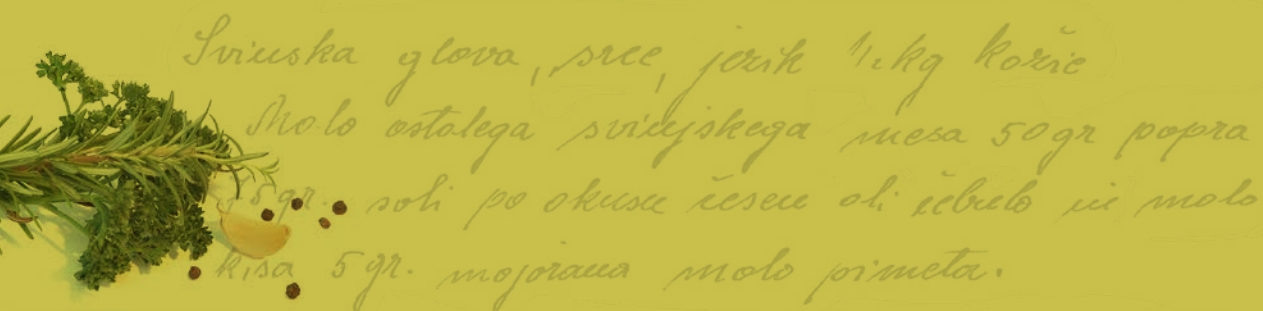 Svinska glova, srce, jezik 1/2 kg kožic
Malo ostalega svinjskega mesa 50 gr popra
15 gr. soli po okusu česen ali čebulo in malo
kisa 5 gr. majorana malo pimeta.